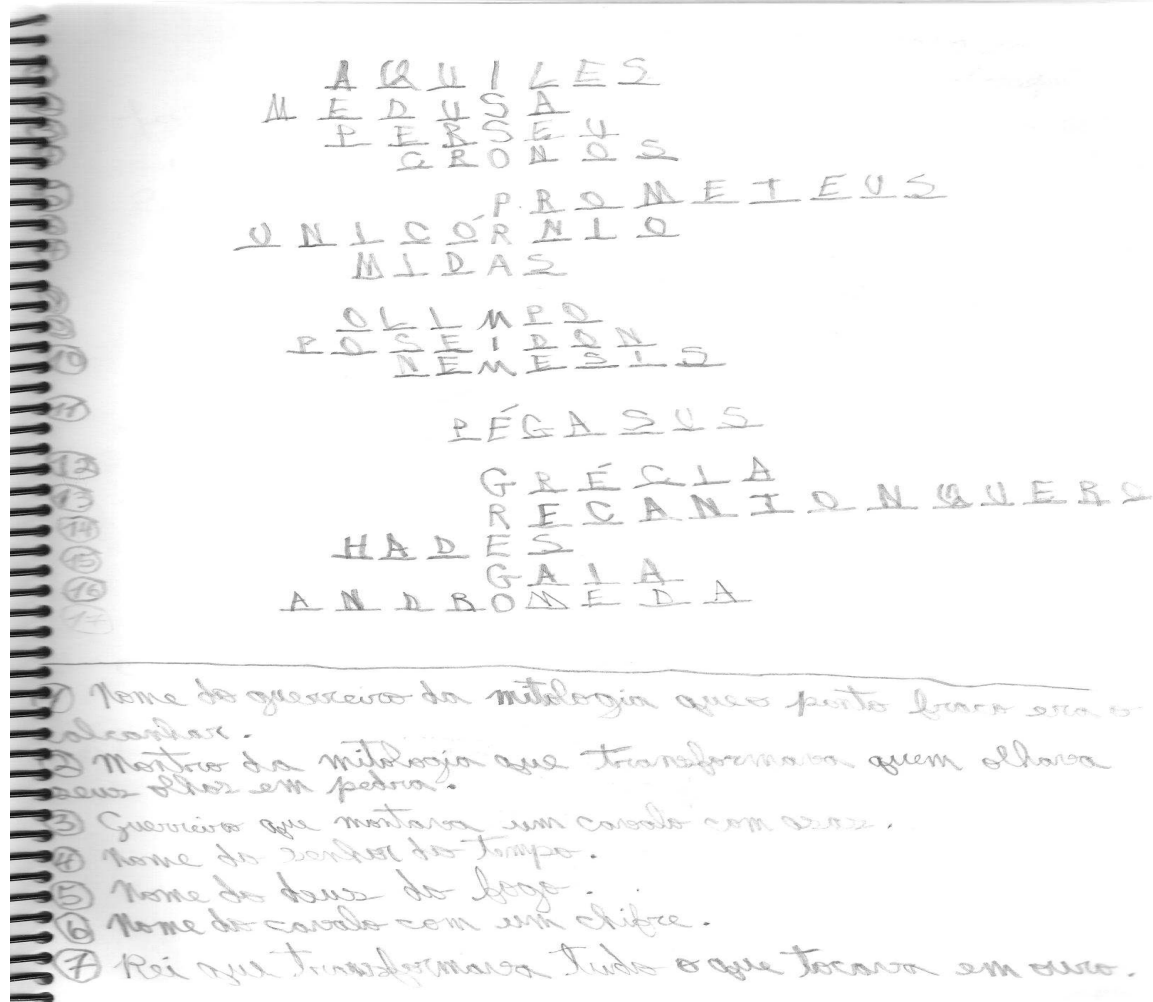 A Q U I L E S
M E D U S A
P E R S E U
C R O N O S
P R O M E T E U S
U N I C Ó R N I O
M I D A S
O L I M P O
P O S E I D O N
N E M E S I S
10
11
P É G A S U S
12
G R É C I A
13
R E C A N T O N Q U E R C
14
H A D E S
15
G A I A
16
A N D R O M E D A
17
1 Nome do guerreiro da mitologia que o ponto fraco era o
calcanhar.
2 Montro da mitologia que transformava quem olhava
seus olhos em pedra.
3 Guerreiro que montava um cavalo com asas.
4 Nome do senhor do tempo.
5 Nome do deus do fogo.
6 Nome do cavalo com um chifre.
7 Rei que transformava tudo o que tocava em ouro.